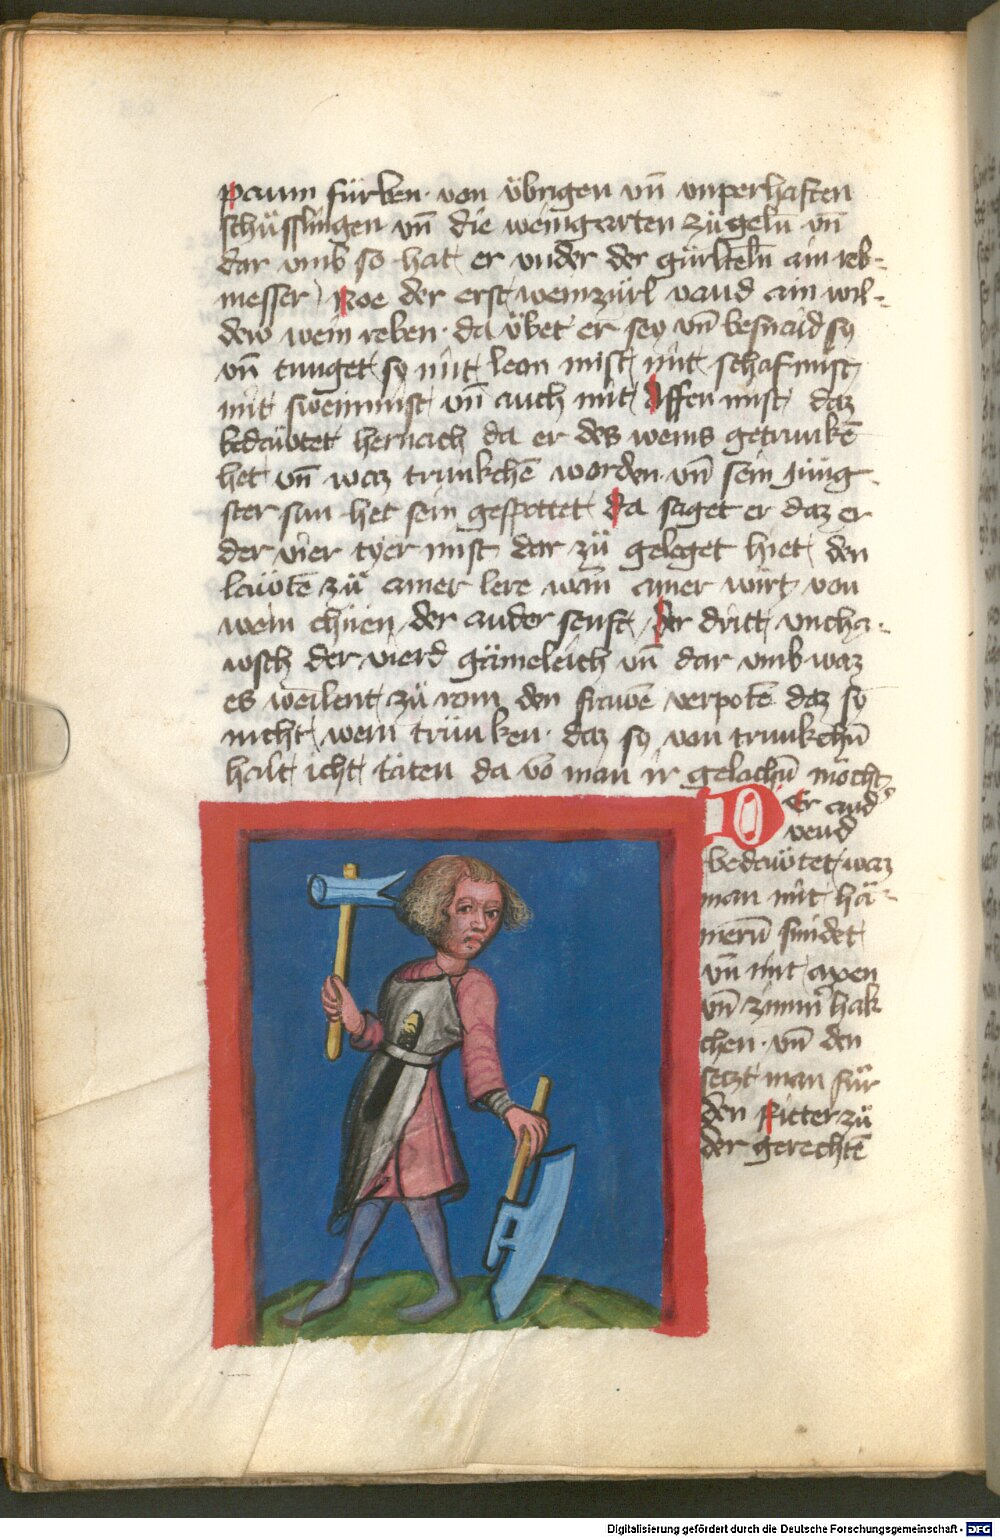 paum fürben · von übrigen vn̄ vnperhaften
schüsslingen vn̄ die weingarten zügeln̄ vn̄
dar vmb so hat er vnder der gürteln̄ ain reb-
messer / Noe der erst weinzürl vand ain wil-
dew wein reben · da übet er sey vn̄ besnaid sy
vn̄ tunget sy mit leon mist mit schaf mist
mit swein mist vn̄ auch mit Affen mist daz
bedäwtet hernach da er des weins getrunkē
het vn̄ waz trunkchē worden · vn̄ sein jüng-
ster sun het sein gespottet Da saget er daz er
der vier tyer mist dar zü geleget hiet den
läwtē zü ainer lere wan ainer wirt von
wein chüen der ander senft / Der dritt vncha-
wsch der vierd gämeleich vn̄ dar vmb waz
es weilent zü rom den frawē verpotē daz sy
nicht wein trünken · daz sy von trunkchn̄
halt icht täten da vō man ir gelachn̄ möcht
Der and'
vend
bedäwtet waz
man mit hä-
mern̄ smidet
vn̄ mit axen
vn̄ zimm' hak
chen · vn̄ den
setzt man für
den Ritter zü
der gerechtē
Digitalisierung gefördert durch die Deutsche Forschungsgemeinschaft - DFG